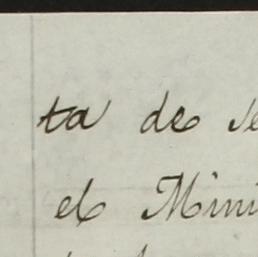 ta de se
el Mini